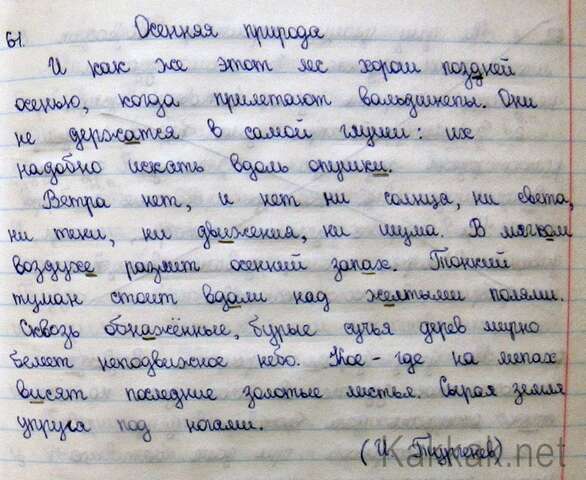 61. Осенняя природа
И как же этот лес хорош поздней
осенью, когда прилетают вальдшнепы. Они
не держатся в самой глуши: их
надобно искать вдоль опушки.
Ветра нет, и нет ни солнца, ни света,
ни тени, ни движения, ни шума. В мягком
воздухе разлит осенний запах. Тонкий
туман стоит вдали над желтыми полями.
Сквозь обнажённые, бурые сучья дерев мирно
белеет неподвижное небо. Кое-где на липах
висят последние золотые листья. Сырая земля
упруга под ногами.
(И. Тургенев)
Kakkak.net